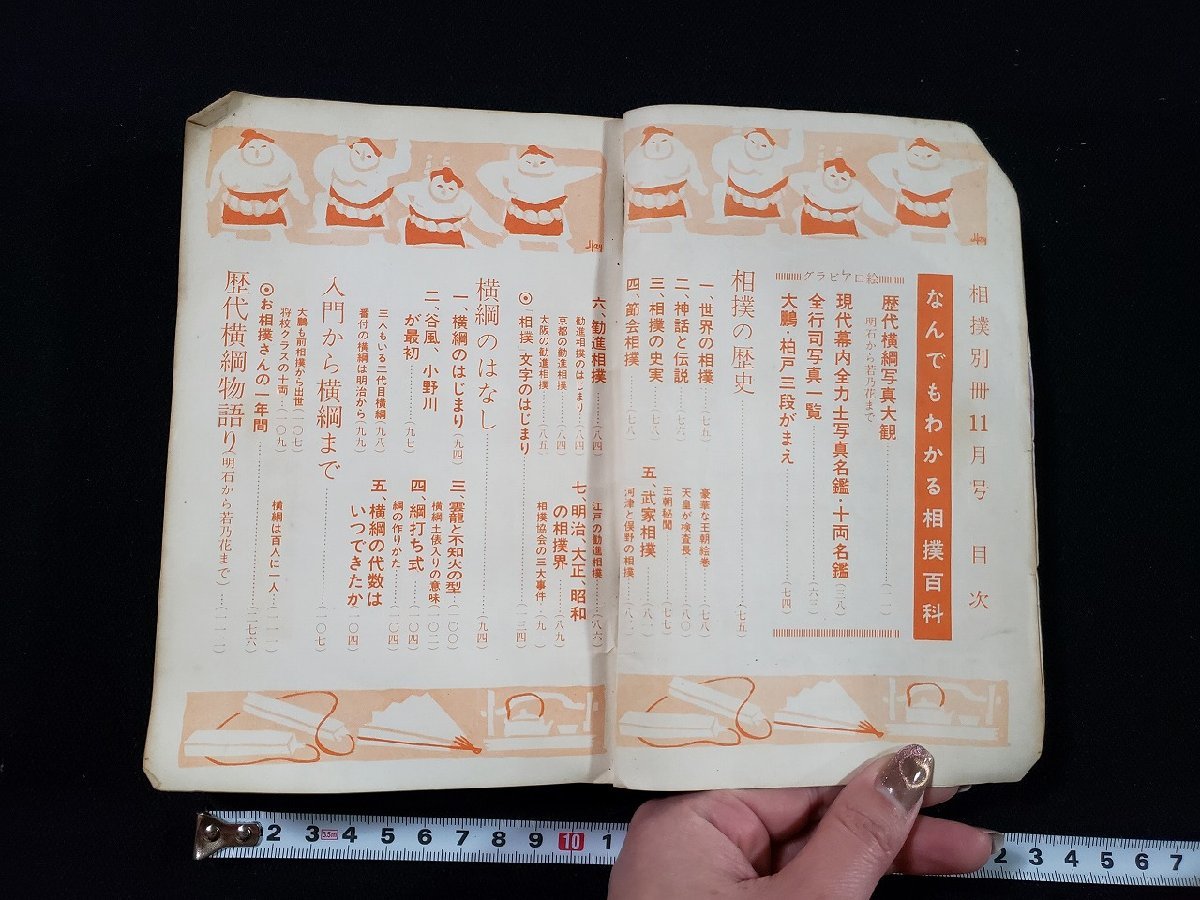 相撲別冊11月号 目次
なんでもわかる相撲百科
グラビア口絵
歴代横綱写真大観
明石から若乃花まで
現代幕内全力士写真名鑑・十両名鑑(三八)
全行司写真一覧(六三)
大鵬・柏戸三段がまえ(七四)
相撲の歴史(七五)
一、世界の相撲(七五)
二、神話と伝説(七六)
三、相撲の史実(七八)
四、節会相撲(七八)
豪華な王朝絵巻(七八)
天皇が検査長(八〇)
王朝秘聞(七七)
五、武家相撲
河津と俣野の相撲
六、勧進相撲(八四)
勧進相撲のはじまり(八四)
京都の勧進相撲(八四)
大阪の勧進相撲(八五)
江戸の勧進相撲(八六)
七、明治、大正、昭和の相撲界(八九)
相撲協会の三大事件
◎相撲 文字のはじまり(一三四)
横綱のはなし(九四)
一、横綱のはじまり(九四)
二、谷風、小野川が最初(九七)
三人もいる二代目横綱(九八)
番付の横綱は明治から(九九)
三、雲龍と不知火の型(一〇〇)
横綱土俵入りの意味(一〇二)
四、綱打ち式(一〇四)
綱の作りかた(一〇四)
五、横綱の代数はいつできたか(一〇四)
入門から横綱まで(一〇七)
大鵬も前相撲から出世(一〇七)
将校クラスの十両(一〇九)
横綱は百人に一人
◎お相撲さんの一年間(二七六)
歴代横綱物語り(明石から若乃花まで)(一一一)
2 3 3.5m 4 5 6 7 8 9 10 1
2 3 4 5 6 7